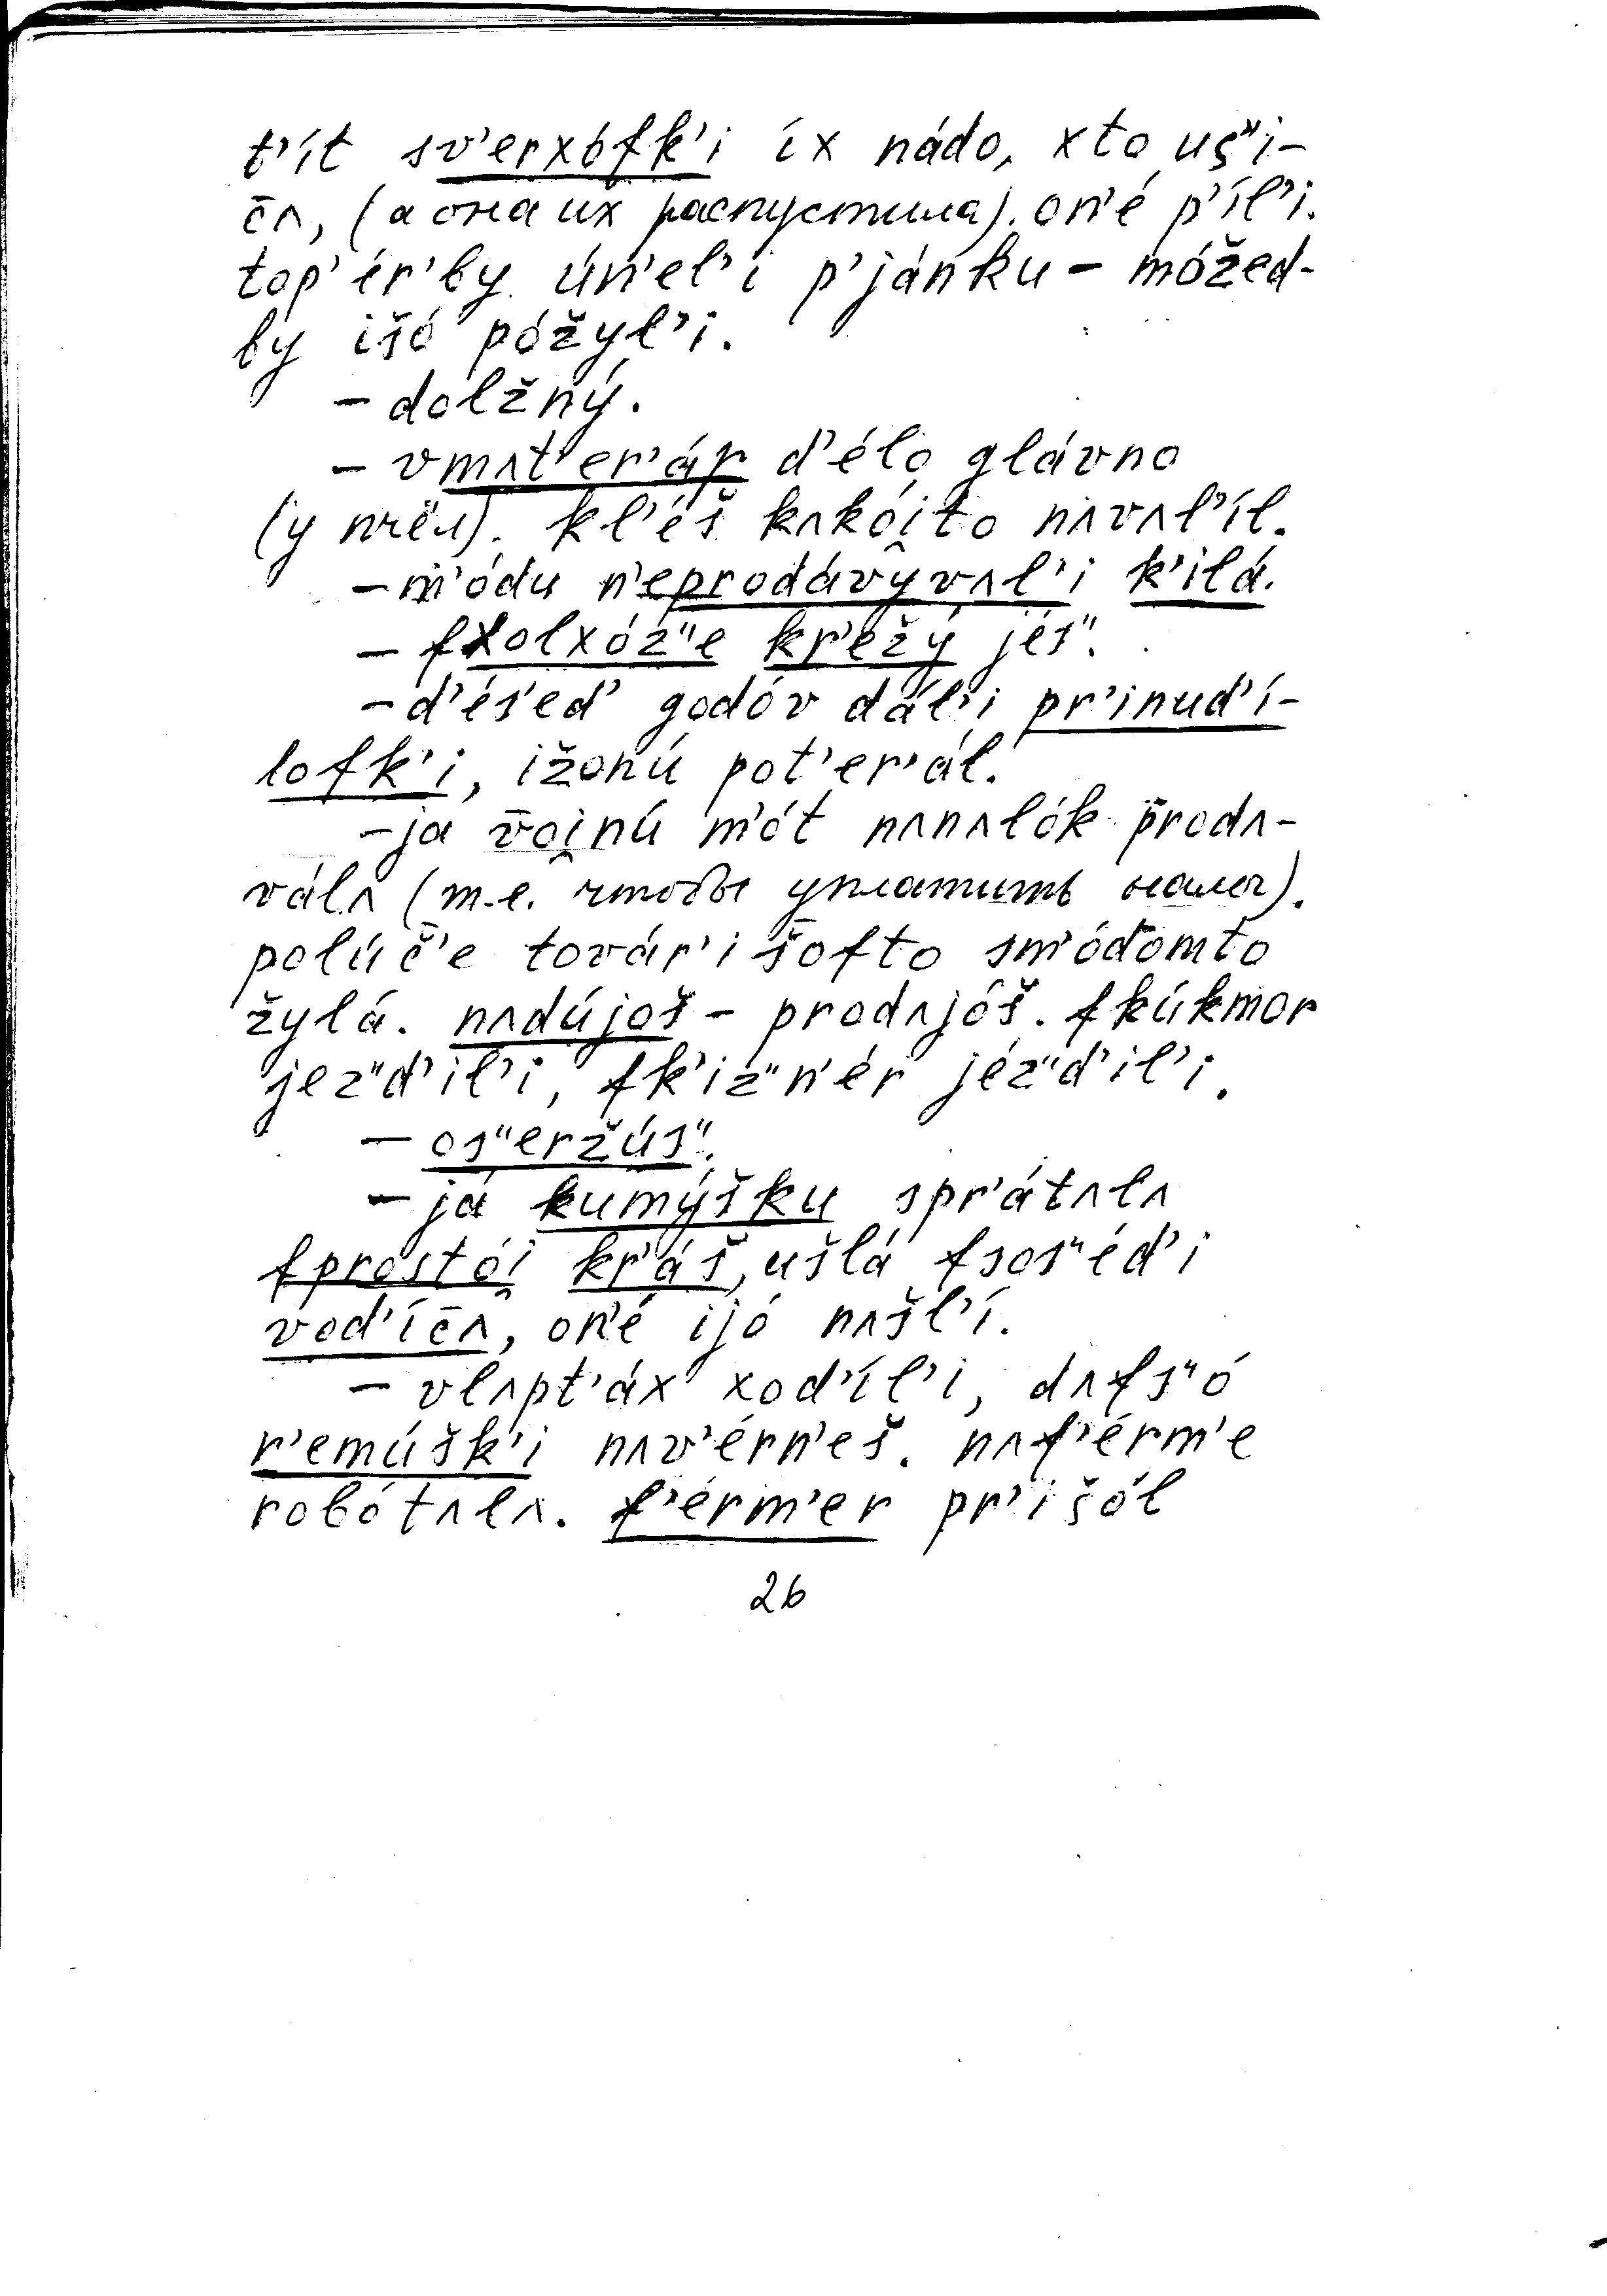 t’ít sv’erxófk’i íx nádo, xto uš̩”i-
c̄ʌ, (а она их распустила). on’é p’íl’i.
top’ér’by ún’el’i p’jánku – móžed-
by išó póžyl’i.
– dolžný.
– vmʌt’er’ár d’élo glávno
(у пчёл). kl’éš kʌkói̯to nʌvʌl’íl.
– m’ódu n’eprodávyvʌl’i k’ilá.
– fxolxóz”e kr’ežý jés”.
– d’és’ed’ godóv dál’i pr’inud’í-
lofk’i, ižonú pot’er’ál.
– ja v̄oi̯nú m’ót nʌnʌlók prodʌ-
válʌ (т.е. чтобы уплатить налог).
polúč’e továr’išofto sm’ódomto
žylá. nʌdújoš – prodʌjóš. fkúkmor
jez”d’il’i, fk’iz”n’ér jéz”d’il’i.
– os”eržús”.
– já kumýšku spr’átʌlʌ
fprostói̯ kr’áš, ušlá fsos”éd’i
vod’íc̄ʌ, on’é ijó nʌšl’í.
– vlʌpt’áx xod’íl’i, dʌfs”ó
r’emúšk’i nʌv’érn’eš. nʌf’érm’e
robótʌlʌ. f’érm’er pr’išól
26